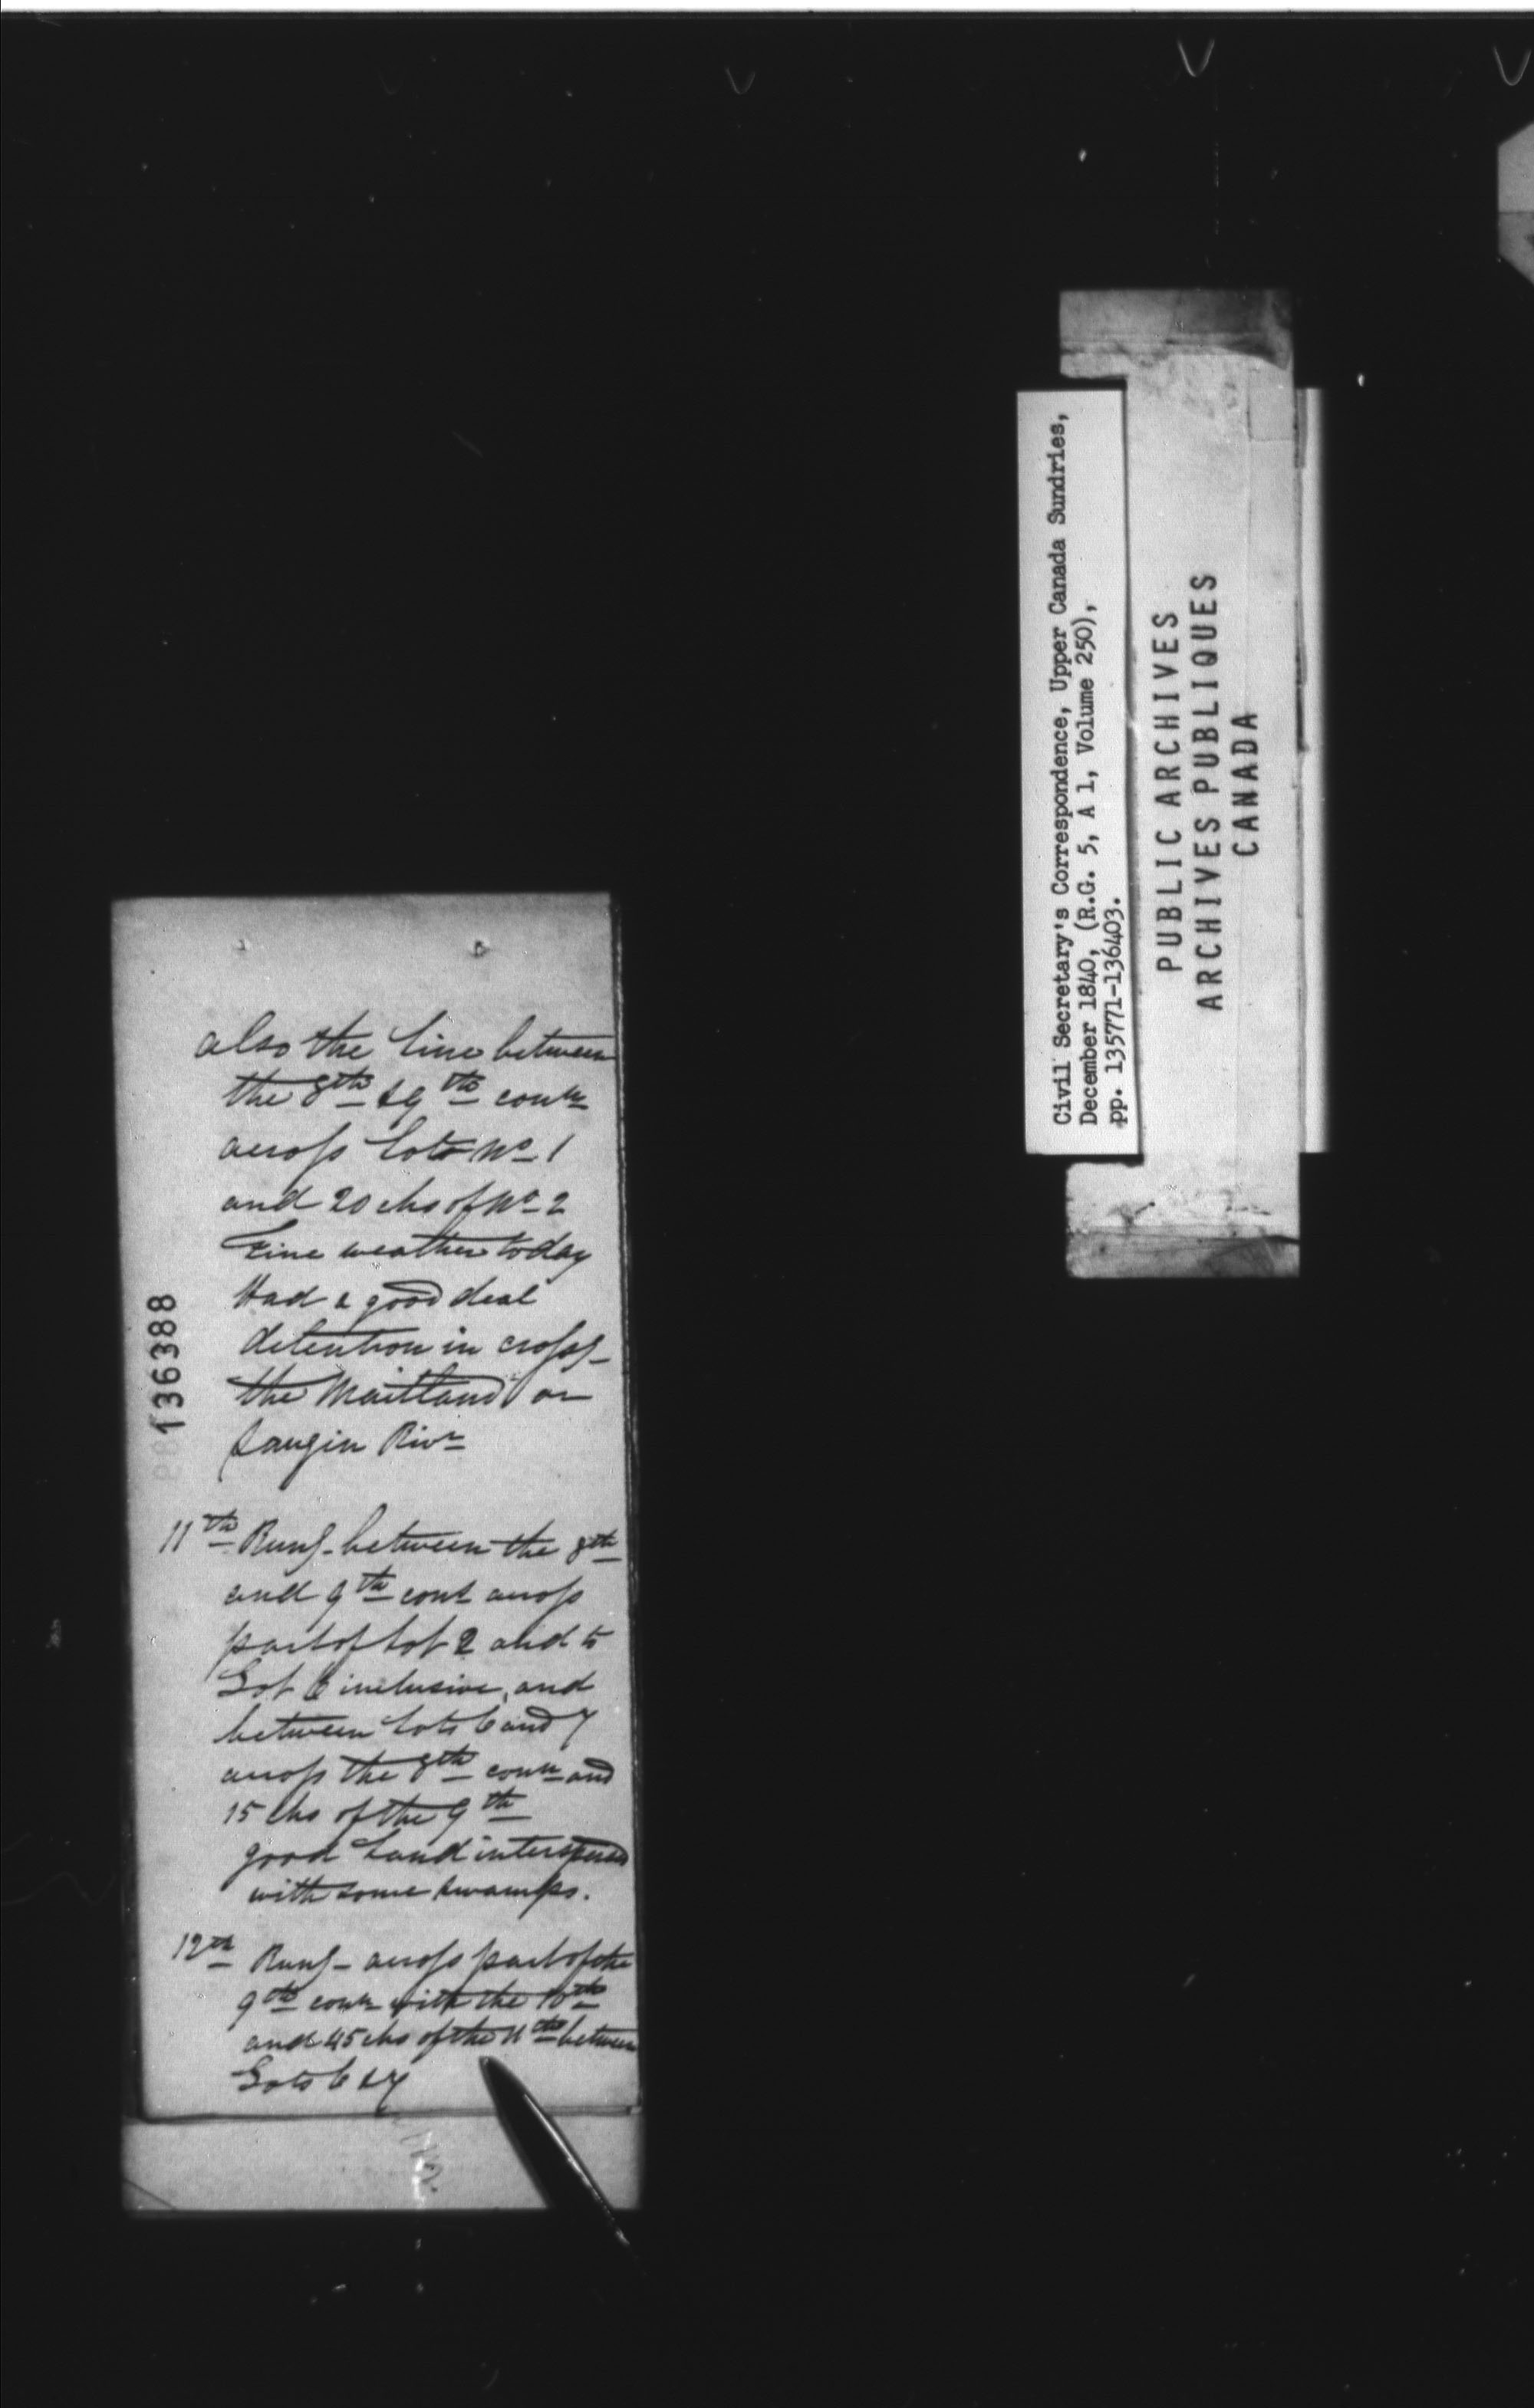 also the line between
the 8th & 9th conn
across Lots No 1
and 20 chs of No 2
Fine weather today
Had a good deal
detention in cross-
the Maitland or
Saugin Rivr
11th Rung - between the 8th
and 9th cons across
part of Lot 2 and to
Lot 6 inclusive, and
between Lots 6 and 7
across the 8th conn and
15 chs of the 9th
good Land interspersed
with some swamps.
12th Rung - across part of the
9th conn with the 10th
and 45 chs of the 11th between
Lots 6 & 7
136388
Civil Secretary's Correspondence, Upper Canada Sundries,
December 1840, (R.G. 5, A 1, Volume 250),
pp. 135771-136403.
PUBLIC ARCHIVES
ARCHIVES PUBLIQUES
CANADA